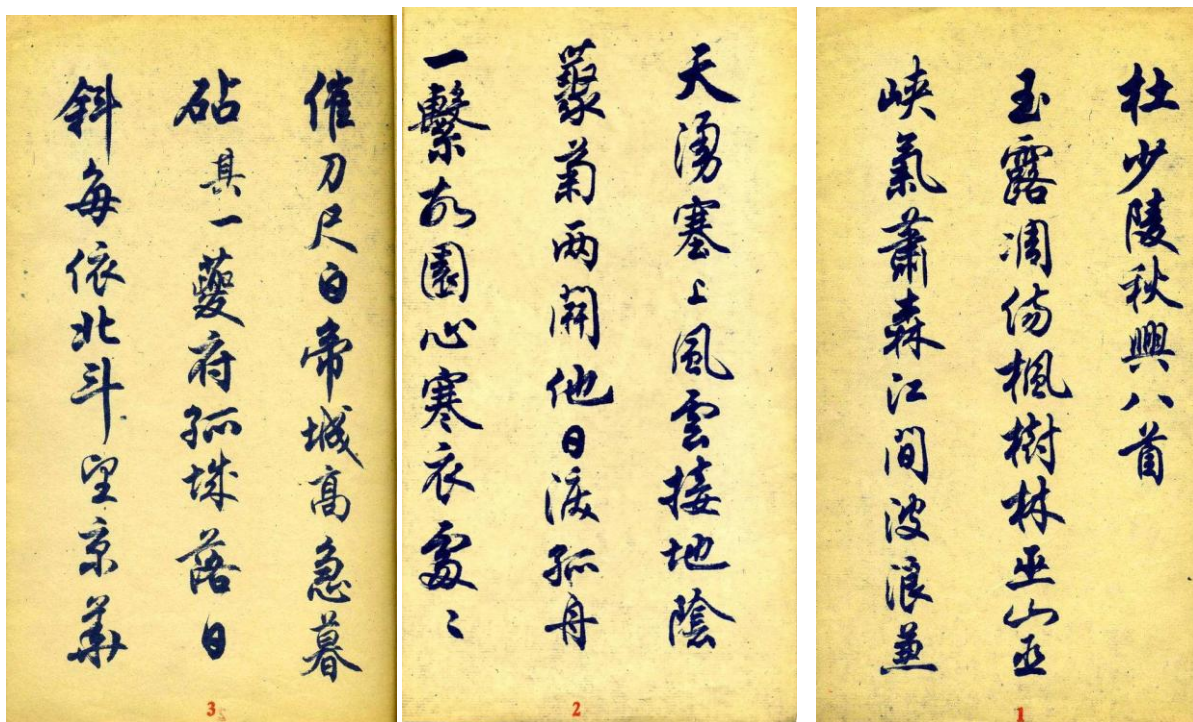 杜少陵秋興八首
玉露凋傷楓樹林巫山巫
峽氣蕭森江間波浪兼
1
天湧塞上風雲接地陰
叢菊兩開他日淚孤舟
一繫故園心寒衣處〻
2
催刀尺白帝城高急暮
砧 其一 夔府孤城落日
斜每依北斗望京華
3